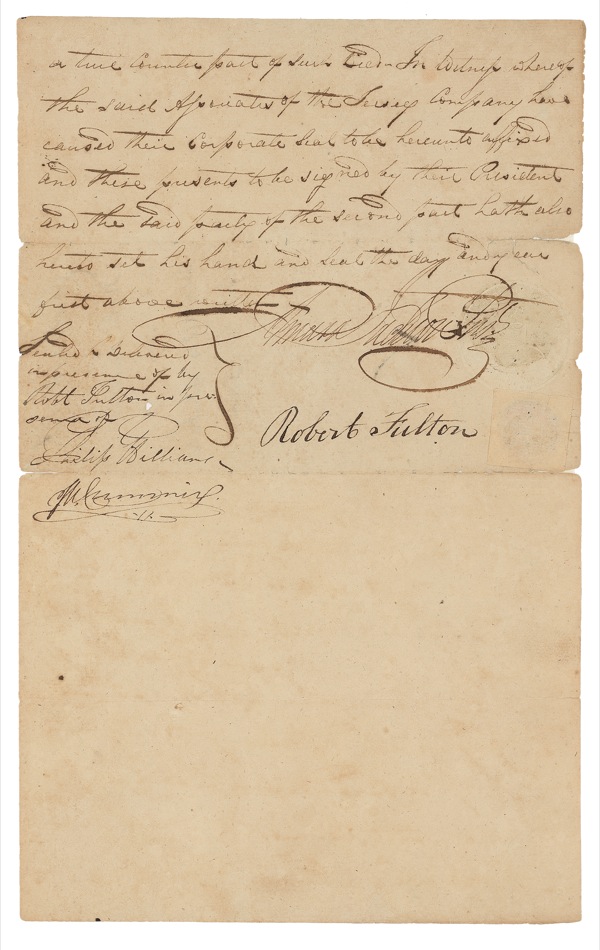 a true Counter part of such Deed – In witness whereof
the said Associates of the Jersey Company have
caused their Corporate Seal to be hereunto affixed
and these presents to be signed by their President
and the said party of the second part hath also
hereto set his hand and seal the day and year
first above written
Sealed & delivered
in presence of by
Robt Fulton in pre-
sence of
Robert Fulton